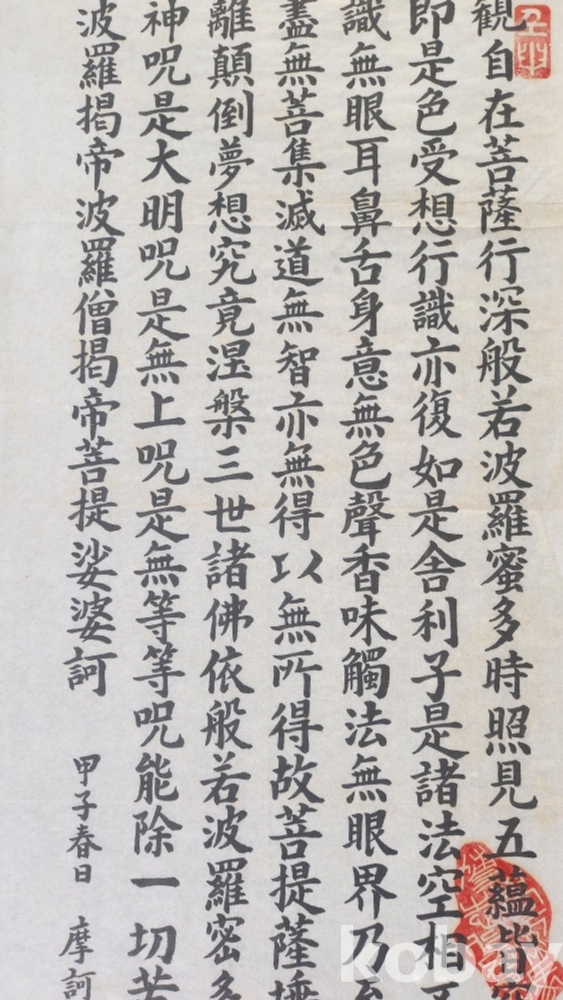 観自在菩薩行深般若波羅蜜多時照見五蘊皆空
即是色受想行識亦復如是舍利子是諸法空相不
識無眼耳鼻舌身意無色聲香味觸法無眼界乃至
盡無菩集滅道無智亦無得以無所得故菩提薩埵
離顛倒夢想究竟涅槃三世諸佛依般若波羅密多
神呪是大明呪是無上呪是無等等呪能除一切苦
波羅揭帝波羅僧揭帝菩提娑婆訶 甲子春日 摩訶
kobay